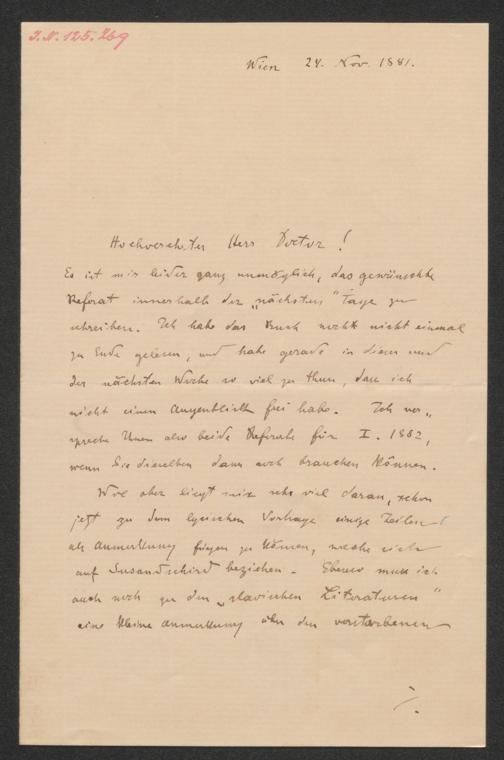 J. N. 125.269
Wien 24. Nov. 1881.
Hochverehrter Herr Doctor!
Es ist mir leider ganz unmöglich, das gewünschte
Referat innerhalb der „nächsten" Tage zu
schreiben. Ich habe das Buch noch nicht einmal
zu Ende gelesen, und habe gerade in dieser und
der nächsten Woche so viel zu thun, dass ich
nicht einen Augenblick frei habe. Ich ver„
spreche Ihnen also beide Referate für I. 1882,
wenn Sie dieselben dann noch brauchen können.
Wol aber liegt mir sehr viel daran, schon
jetzt zu dem lyrischen Vortrage einige Zeilen
als Anmerkung fügen zu können, welche sich
auf Susandschird beziehen. Ebenso muss ich
auch noch zu den „slavischen Literaturen"
eine kleine Anmerkung über den verstorbenen
./.